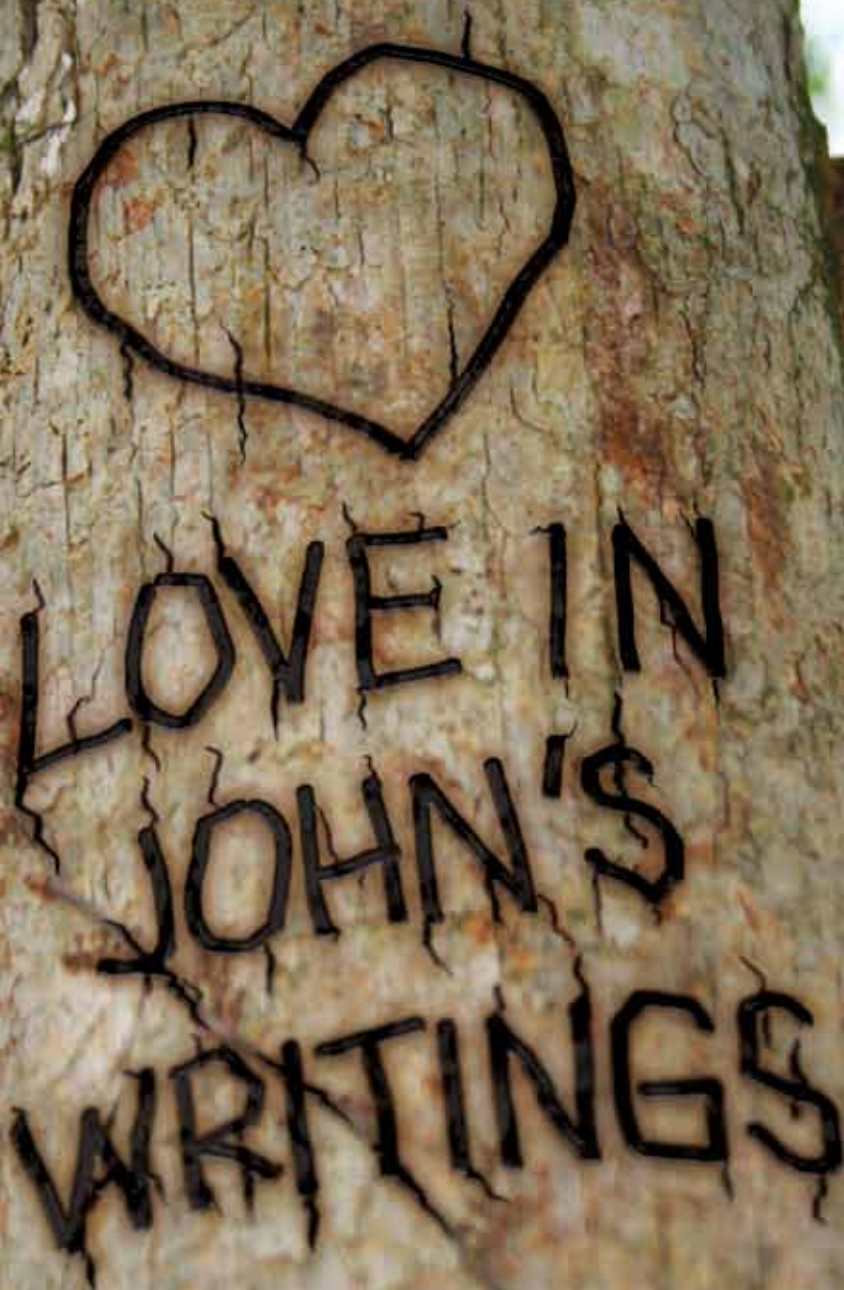 LOVE IN
JOHN'S
WRITINGS